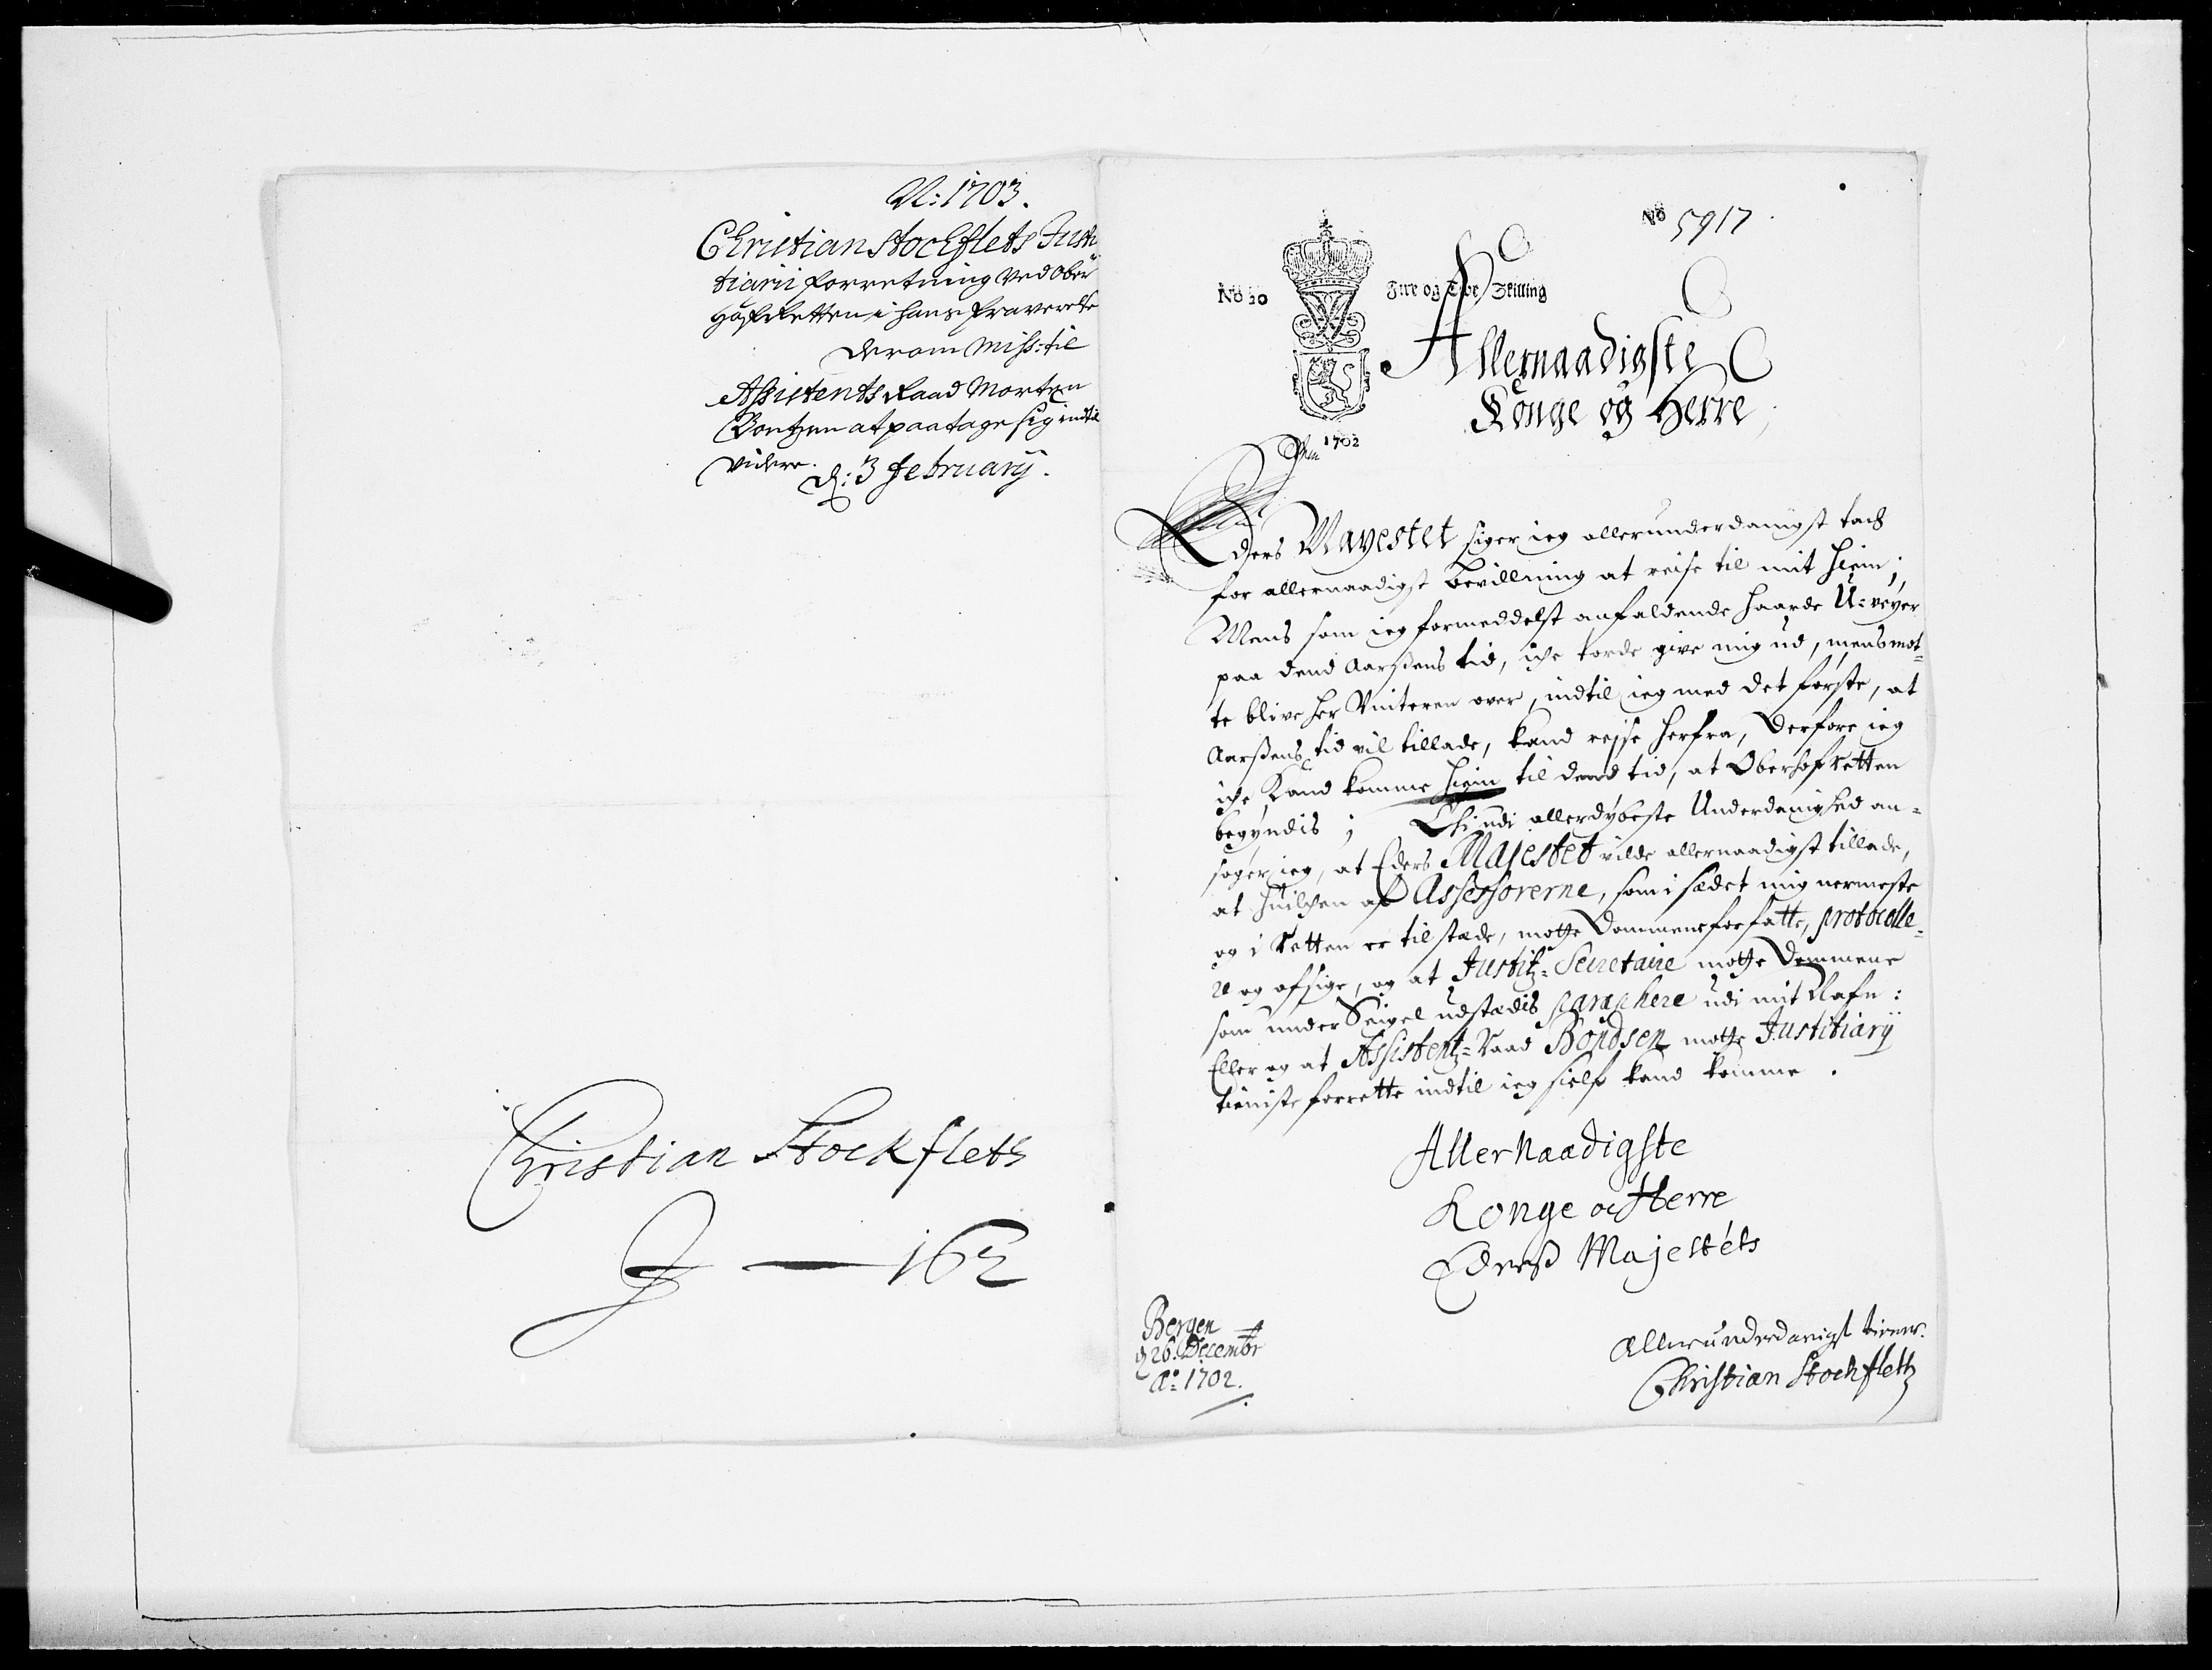 N: 1703.
Christian Stockflets Justi
tiarii forretning ved Ober
Hofretten i hans fraverelse
derom Miss: til
Assistents Raad Morten
Bontzen at paatage sig indtil
videre.
d: 3 February.
Christian Stockfleth
J — 162
No 5917.
No 20
Fire og Tive Skilling
1702
Allernaadigste
Konge og Herre,
Eders Mayestet siger ieg allerunderdanigst tach
for allernaadigst bevillning at reise til mit hiem;
Mens som ieg formeddelst anfaldende haarde U=veyer
paa dend Aarssens tid, iche torde give mig ud, mens mot=
te blive her Vinteren over, indtil ieg med det første, at
Aarssens tid vil tillade, kand rejse herfra, Derfore ieg
iche Kand komme hiem til dend tid, at Oberhofretten
begyndis; Thi udi allerdybeste Underdanighed an=
søger ieg, at Eders Majestet vilde allernaadigst tillade,
at huilchen af Assessorerne, som i sædet mig nermeste
og i Retten er tilstæde, motte Dommene forfatte, protocolle=
re og afsige, og at Justitz=Secretaire motte Dommene
som under Seigel udstædis paraphere udi mit Nafn:
Eller og at Assistentz=Raad Bondsen motte Justitiarij
tieniste forrette indtil ieg sielf kand komme.
Allernaadigste
Konge oc Herre
Ederss Majestéts
Bergen
d 26. Decembr
Ao: 1702.
Allerunderdanigst tiener.
Christian Stockfleth